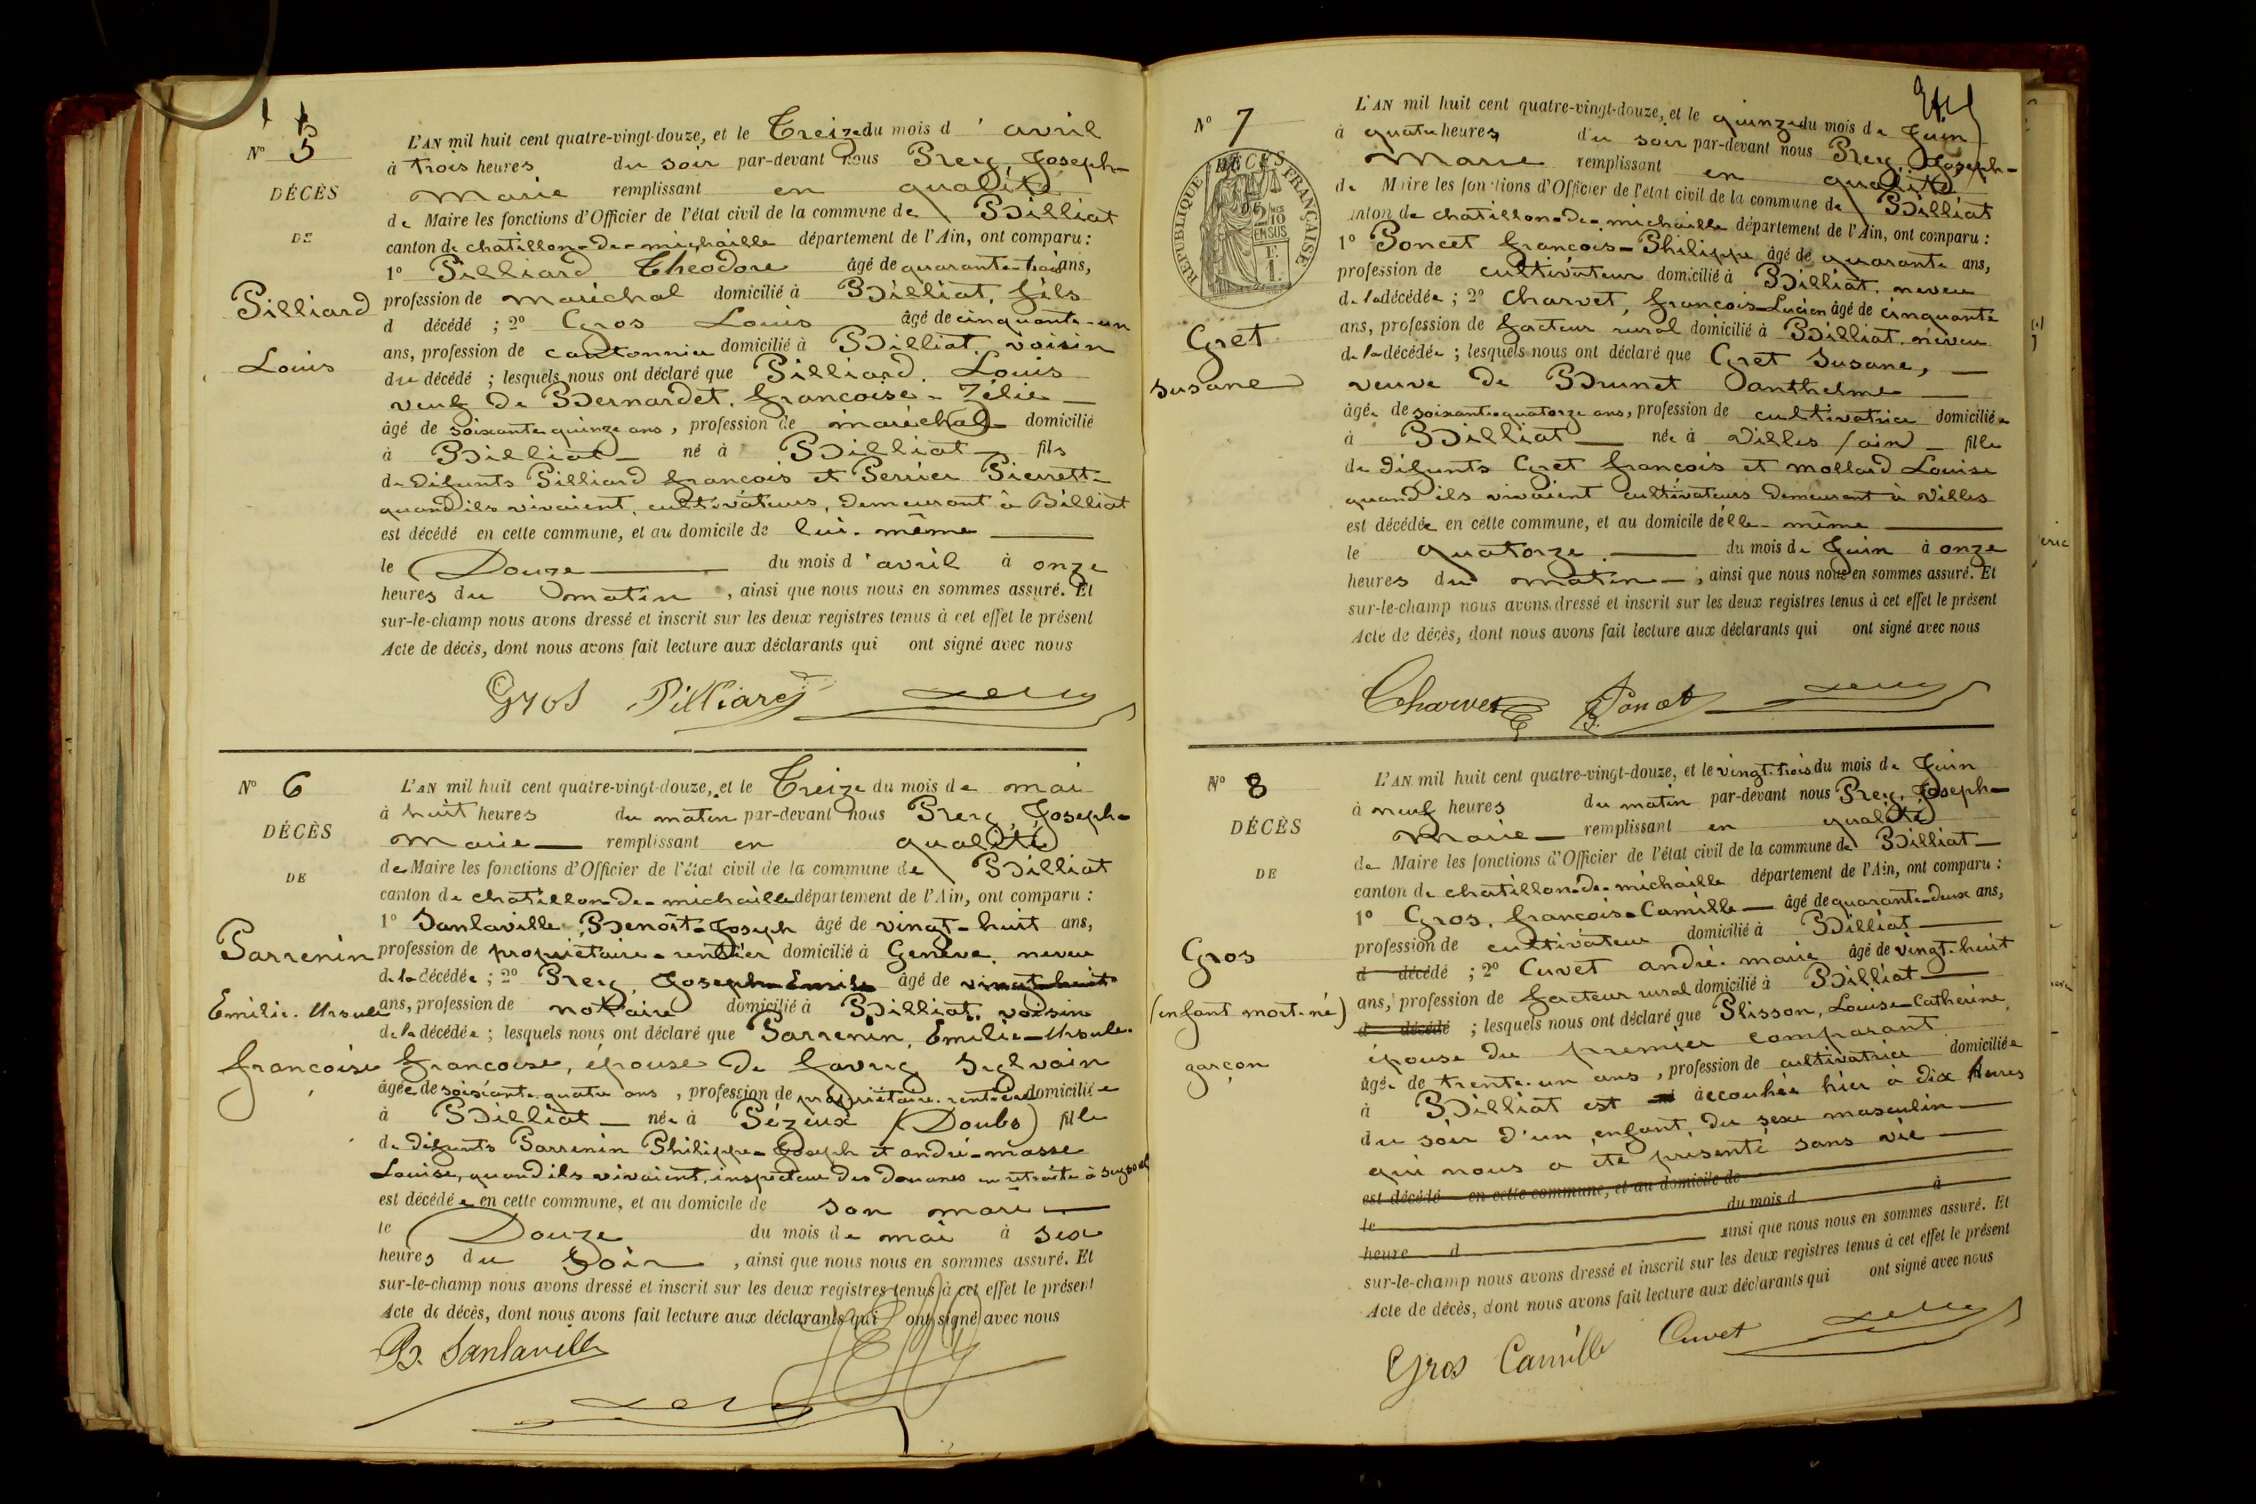 N° 5
DÉCÈS
DE
Pilliard
Louis
L'AN mil huit cent quatre-vingt-douze, et le Treize du mois d'avril
à trois heures du soir par-devant nous Prery, Joseph-
Marie remplissant en qualité
de Maire les fonctions d'Officier de l'état civil de la commune de Billiat
canton de chatillon-de-michaille département de l'Ain, ont comparu :
1° Pilliard Théodore âgé de quarante-trois ans,
profession de maréchal domicilié à Billiat, fils
d décédé ; 2° Gros Louis âgé de cinquante-un
ans, profession de cantonnier domicilié à Billiat, voisin
du décédé ; lesquels nous ont déclaré que Pilliard, Louis
veuf de Bernardet, françoise-Zélie
âgé de soixante quinze ans, profession de maréchal domicilié
à Billiat né à Billiat fils
de défunts Pilliard françois et Perrier Pierrette
quand ils vivaient, cultivateurs, demeurant à Billiat
est décédé en cette commune, et au domicile de lui-même
le Douze du mois d'avril à onze
heures du matin, ainsi que nous nous en sommes assuré. Et
sur-le-champ nous avons dressé et inscrit sur les deux registres tenus à cet effet le présent
Acte de décès, dont nous avons fait lecture aux déclarants qui ont signé avec nous
Gros Pilliard
N° 6
DÉCÈS
DE
Parrenin
Emilie-Ursule
françoise
L'AN mil huit cent quatre-vingt-douze, et le Treize du mois de mai
à huit heures du matin par-devant nous Prery, Joseph-
Marie remplissant en qualité
de Maire les fonctions d'Officier de l'état civil de la commune de Billiat
canton de chatillon-de-michaille département de l'Ain, ont comparu :
1° Sanlaville, Benoît-Joseph âgé de vingt-huit ans,
profession de propriétaire-rentier domicilié à Genève, neveu
de la décédée ; 2° Prery, Joseph-Emile âgé de vingt-huit
ans, profession de notaire domicilié à Billiat, voisin
de la décédée ; lesquels nous ont déclaré que Parrenin, Emilie-Ursule-
françoise, épouse de Savey Sylvain
âgée de soixante quatre ans, profession de propriétaire-rentière domiciliée
à Billiat née à Pézeux (Doubs) fille
de défunts Parrenin Philippe-Joseph et andré-masse
Louise, quand ils vivaient, inspecteur des Douanes en retraite à Seyssel
est décédée en cette commune, et au domicile de son mari
le Douze du mois de mai à six
heures du soir, ainsi que nous nous en sommes assuré. Et
sur-le-champ nous avons dressé et inscrit sur les deux registres tenus à cet effet le présent
Acte de décès, dont nous avons fait lecture aux déclarants qui ont signé avec nous
B. Sanlaville
N° 7
DÉCÈS
RÉPUBLIQUE FRANÇAISE
2/10 EN SUS
Gret
Susane
L'AN mil huit cent quatre-vingt-douze, et le quinze du mois de Juin
à quatre heures du soir par-devant nous Prery, Joseph-
Marie remplissant en qualité
de Maire les fonctions d'Officier de l'état civil de la commune de Billiat
anton de chatillon-de-michaille département de l'Ain, ont comparu :
1° Poncet françois-Philippe âgé de quarante ans,
profession de cultivateur domicilié à Billiat, neveu
de la décédée ; 2° Charvet, françois-Lucien âgé de cinquante
ans, profession de facteur rural domicilié à Billiat, neveu
de la décédée ; lesquels nous ont déclaré que Gret Susane,
veuve de Brunet Danthelme
âgée de soixante quatorze ans, profession de cultivatrice domiciliée
à Billiat née à Villes (ain) fille
de défunts Gret françois et mollard Louise
quand ils vivaient cultivateurs demeurant à Villes
est décédée en cette commune, et au domicile d'elle-même
le quatorze du mois de Juin à onze
heures du matin, ainsi que nous nous en sommes assuré. Et
sur-le-champ nous avons dressé et inscrit sur les deux registres tenus à cet effet le présent
Acte de décès, dont nous avons fait lecture aux déclarants qui ont signé avec nous
Charvet Poncet
N° 8
DÉCÈS
DE
Gros
(enfant mort-né)
garçon
L'AN mil huit cent quatre-vingt-douze, et le vingt-trois du mois de Juin
à neuf heures du matin par-devant nous Prery, Joseph-
Marie remplissant en qualité
de Maire les fonctions d'Officier de l'état civil de la commune de Billiat
canton de chatillon-de-michaille département de l'Ain, ont comparu :
1° Gros, françois-Camille âgé de quarante-deux ans,
profession de cultivateur domicilié à Billiat
d décédé ; 2° Cuvet andré-marie âgé de vingt-huit
ans, profession de facteur rural domicilié à Billiat
d décédé ; lesquels nous ont déclaré que Plisson, Louise-Catherine,
épouse du premier comparant
âgée de trente-un ans, profession de cultivatrice domiciliée
à Billiat est accouchée hier à dix heures
du soir d'un enfant, du sexe masculin
qui nous a été présenté sans vie
est décédé en cette commune, et au domicile de
le du mois d à
heure d ainsi que nous nous en sommes assuré. Et
sur-le-champ nous avons dressé et inscrit sur les deux registres tenus à cet effet le présent
Acte de décès, dont nous avons fait lecture aux déclarants qui ont signé avec nous
Gros Camille Cuvet